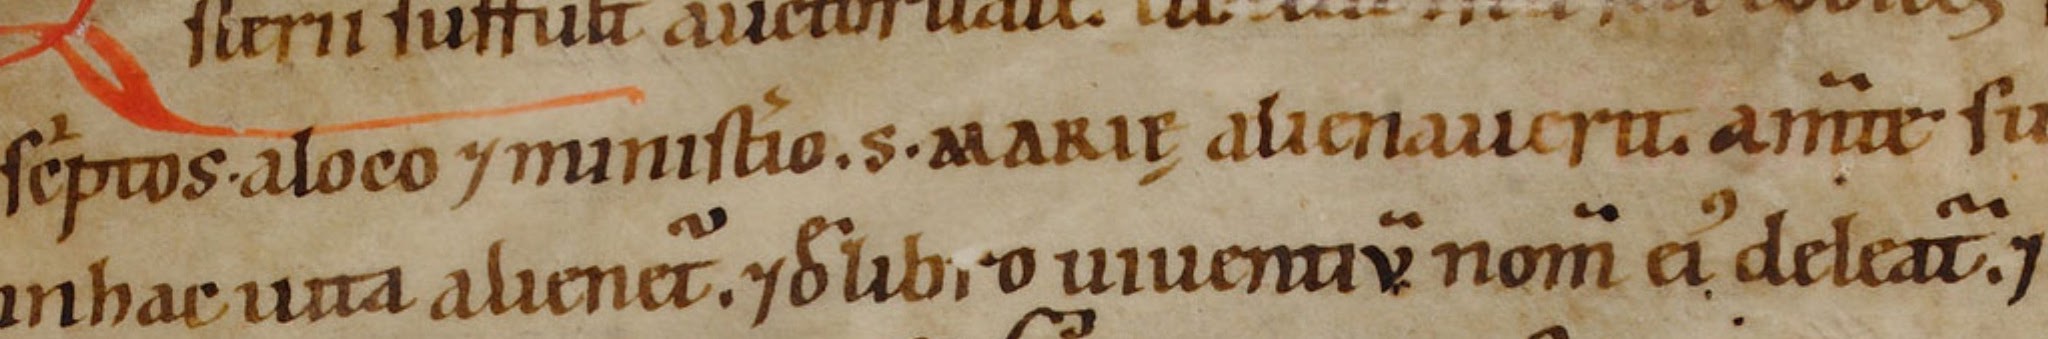 sterii suffulti auctoritate.
sc̓ptos. a loco ⁊ minist̓io. s. MARIĘ alienauerit. a m̅te su
in hac uita alienet᷑. ⁊ de libro uiuentiu̅ nom̅ ei᾽ deleat᷑. ⁊